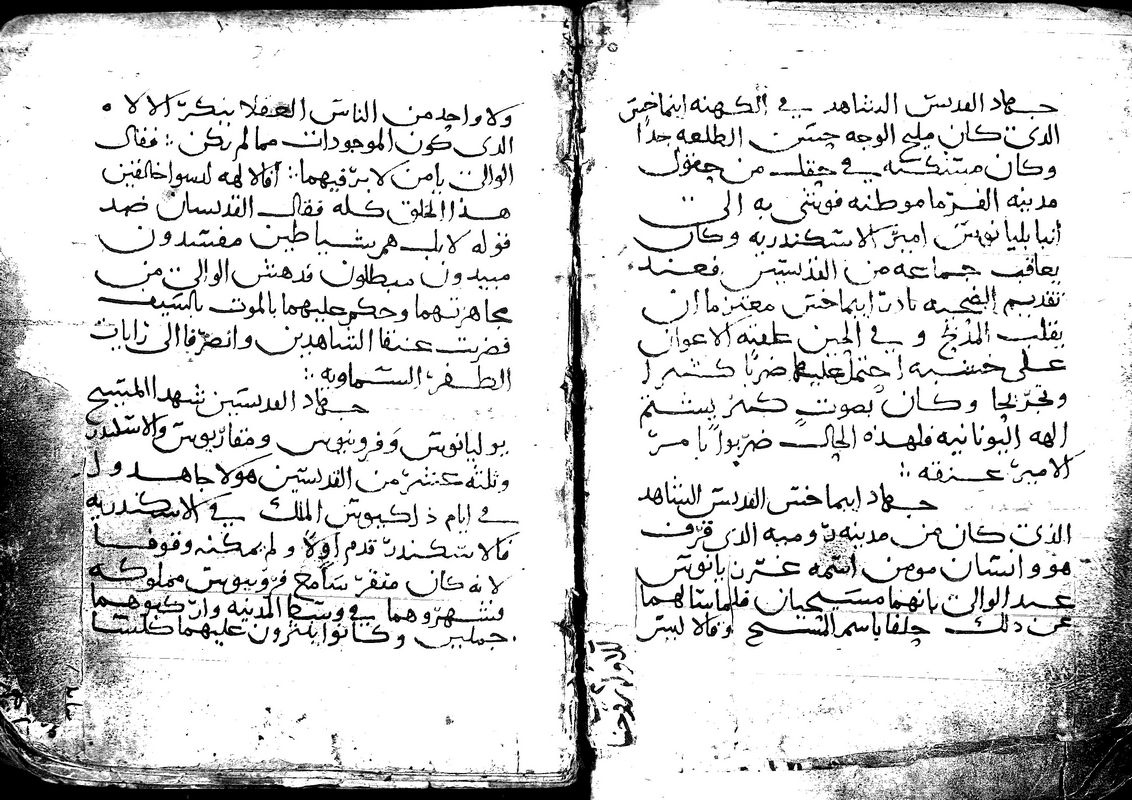 جهاد القديس الشاهد في الكهنه ابيماخس
الذي كان مليح الوجه حسن الطلعه جدا
وكان مسكنه في حقل من حقول
مدينه الفرما موطنه فوشي به الى
أبليانوس امير الاسكندريه وكان
يعاقب جماعه من القديسين فعند
تقديم الضحيه بادر ابيماخس معتزما ان
يقلب المذبح وفي الحين علقه الاعوان
على خشبه احتمل عليها ضربا كثيرا
وتجريحا وكان بصوت كبير يشتم
الهه اليونانيه فلهذه الحال ضربوا بامر
الامير عنقه :
جهاد ابيماخس القديس الشاهد
الذي كان من مدينه روميه الذي قرف
هو وانسان مومن اسمه غرديانوس
عند الوالي بانهما مسيحيان فلما سالهما
عن ذلك حلفا باسم المسيح وقالا ليس
ولا واحد من الناس العقلا ينكر الالاه
الذي كون الموجودات مما لم تكن : فقال
الوالي يا من لا بر فيهما : أفالالهه ليسوا خالقين
هذا الخلق كله فقال القديسان ضد
قوله لا بل هم شياطين مفسدون
مبيدون مبطلون فدهش الوالي من
مجاهرتهما وحكم عليهما بالموت بالسيف
فضربت عنقا الشاهدين وانصرفا الى رايات
الظفر السماويه :
جهاد القديسين شهدا المسيح
يوليانوس وفرونيوس ومقاريوس والاسكندر
وثلثه عشر من القديسين هولا جاهدوا
في ايام داكيوس الملك في الاسكندريه
فالاسكندر قدم أولا ولم يمكنه وقوفا
لانه كان منقرسا مع فرونيوس مملوكه
فشهروهما في وسط المدينه واركبوهما
جملين وكانوا ينثرون عليهما كلسا